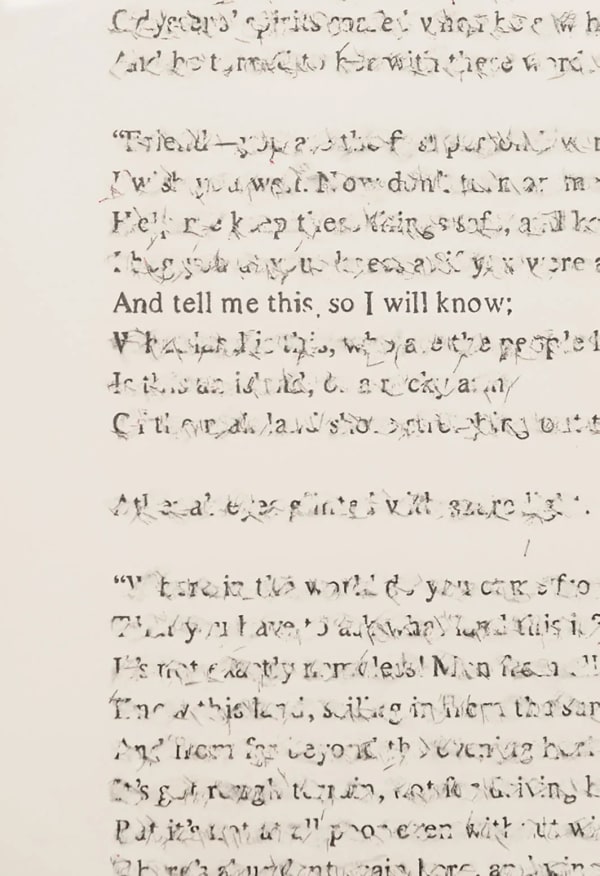 Odysseus' spirits soared when he saw
And he turned to her with these
“Friend—you are the first person I
I wish you well. Now don't turn on me
Help me keep these things safe, and
I beg you at your knees as if you were
And tell me this, so I will know;
What land is this, who are the people
Is this an island, or a rocky arm
Of the mainland shore stretching out
Athena's eyes glinted with azure light.
“Where in the world do you come
That you have to ask what land this is?
It's not exactly nameless! Men from all
Know this land, sailing in from the
And from far beyond the evening
It's got rough terrain, not for driving
But it's not at all poor even without
There's abundant grain here, and